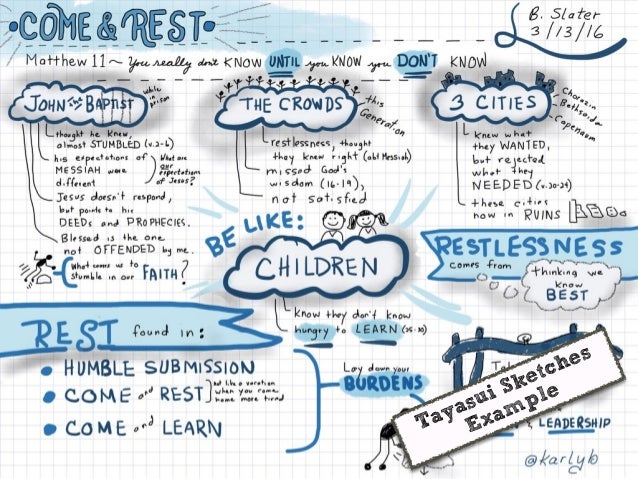 COME & REST
B. Slater
3/13/16
Matthew 11~ you really don't KNOW UNTIL you KNOW you DON'T KNOW
JOHN the BAPTIST
while in prison
thought he knew,
almost STUMBLED (v.2-6)
his expectations of
MESSIAH were
different
What are
our
expectations
of Jesus?
Jesus doesn't respond,
but points to his
DEEDs and PROPHECIES.
Blessed is the one
not OFFENDED by me.
What causes us to
stumble in our FAITH?
THE CROWDS
this
Generation
restlessness, thought
they knew right (abt Messiah)
missed God's
wisdom (16-19),
not satisfied
3 CITIES
Chorazin
Bethsaida
Capernaum
knew what
they WANTED,
but rejected
what they
NEEDED (v.20-24)
these cities
now in RUINS
BE LIKE:
CHILDREN
know they don't know
hungry to LEARN (25-30)
RESTLESSNESS
comes from
thinking we
know
BEST
REST found in:
HUMBLE SUBMISSION
COME and REST
not like a vacation
when you come
home more tired
COME and LEARN
Lay down your
BURDENS
LEADERSHIP
Tayasui Sketches
Example
@karlyb